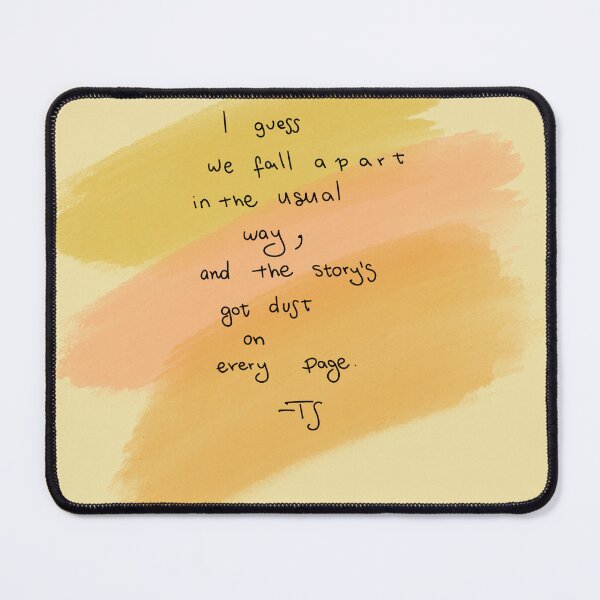 I guess
we fall apart
in the usual
way,
and the story's
got dust
on
every page.
-TS